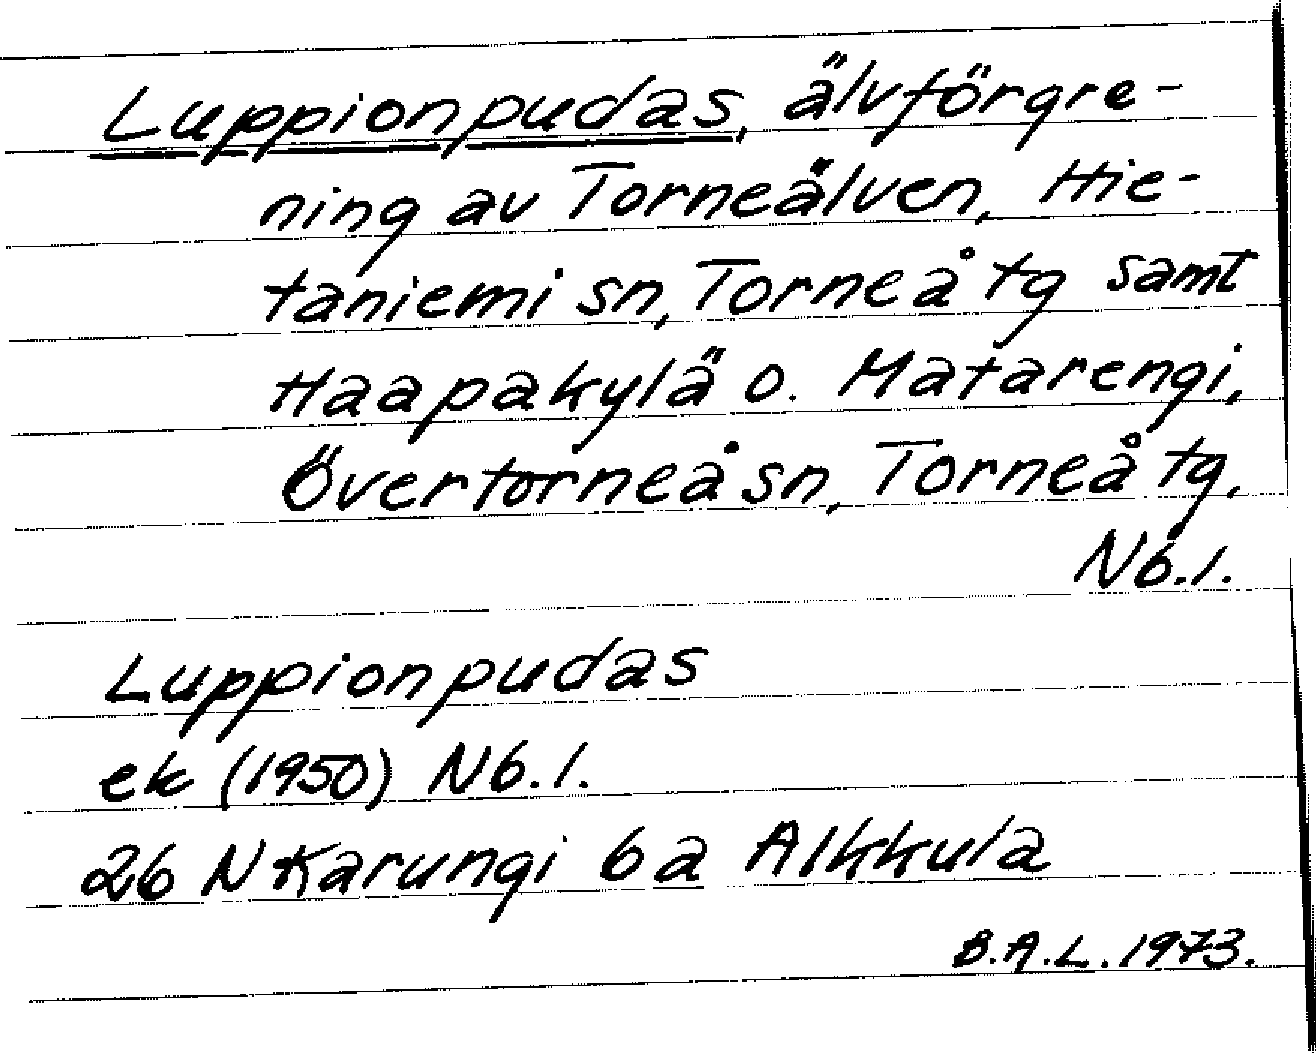 Luppionpudas, älvförgre-
ning av Torneälven, Hie-
taniemi sn, Torneå tg samt
Haapakylä o. Matarengi,
Övertorneå sn, Torneå tg,
Nb.l.
Luppionpudas
ek (1950) Nb.l.
26 N Karungi 6a Alkkula
B.A.L. 1973.